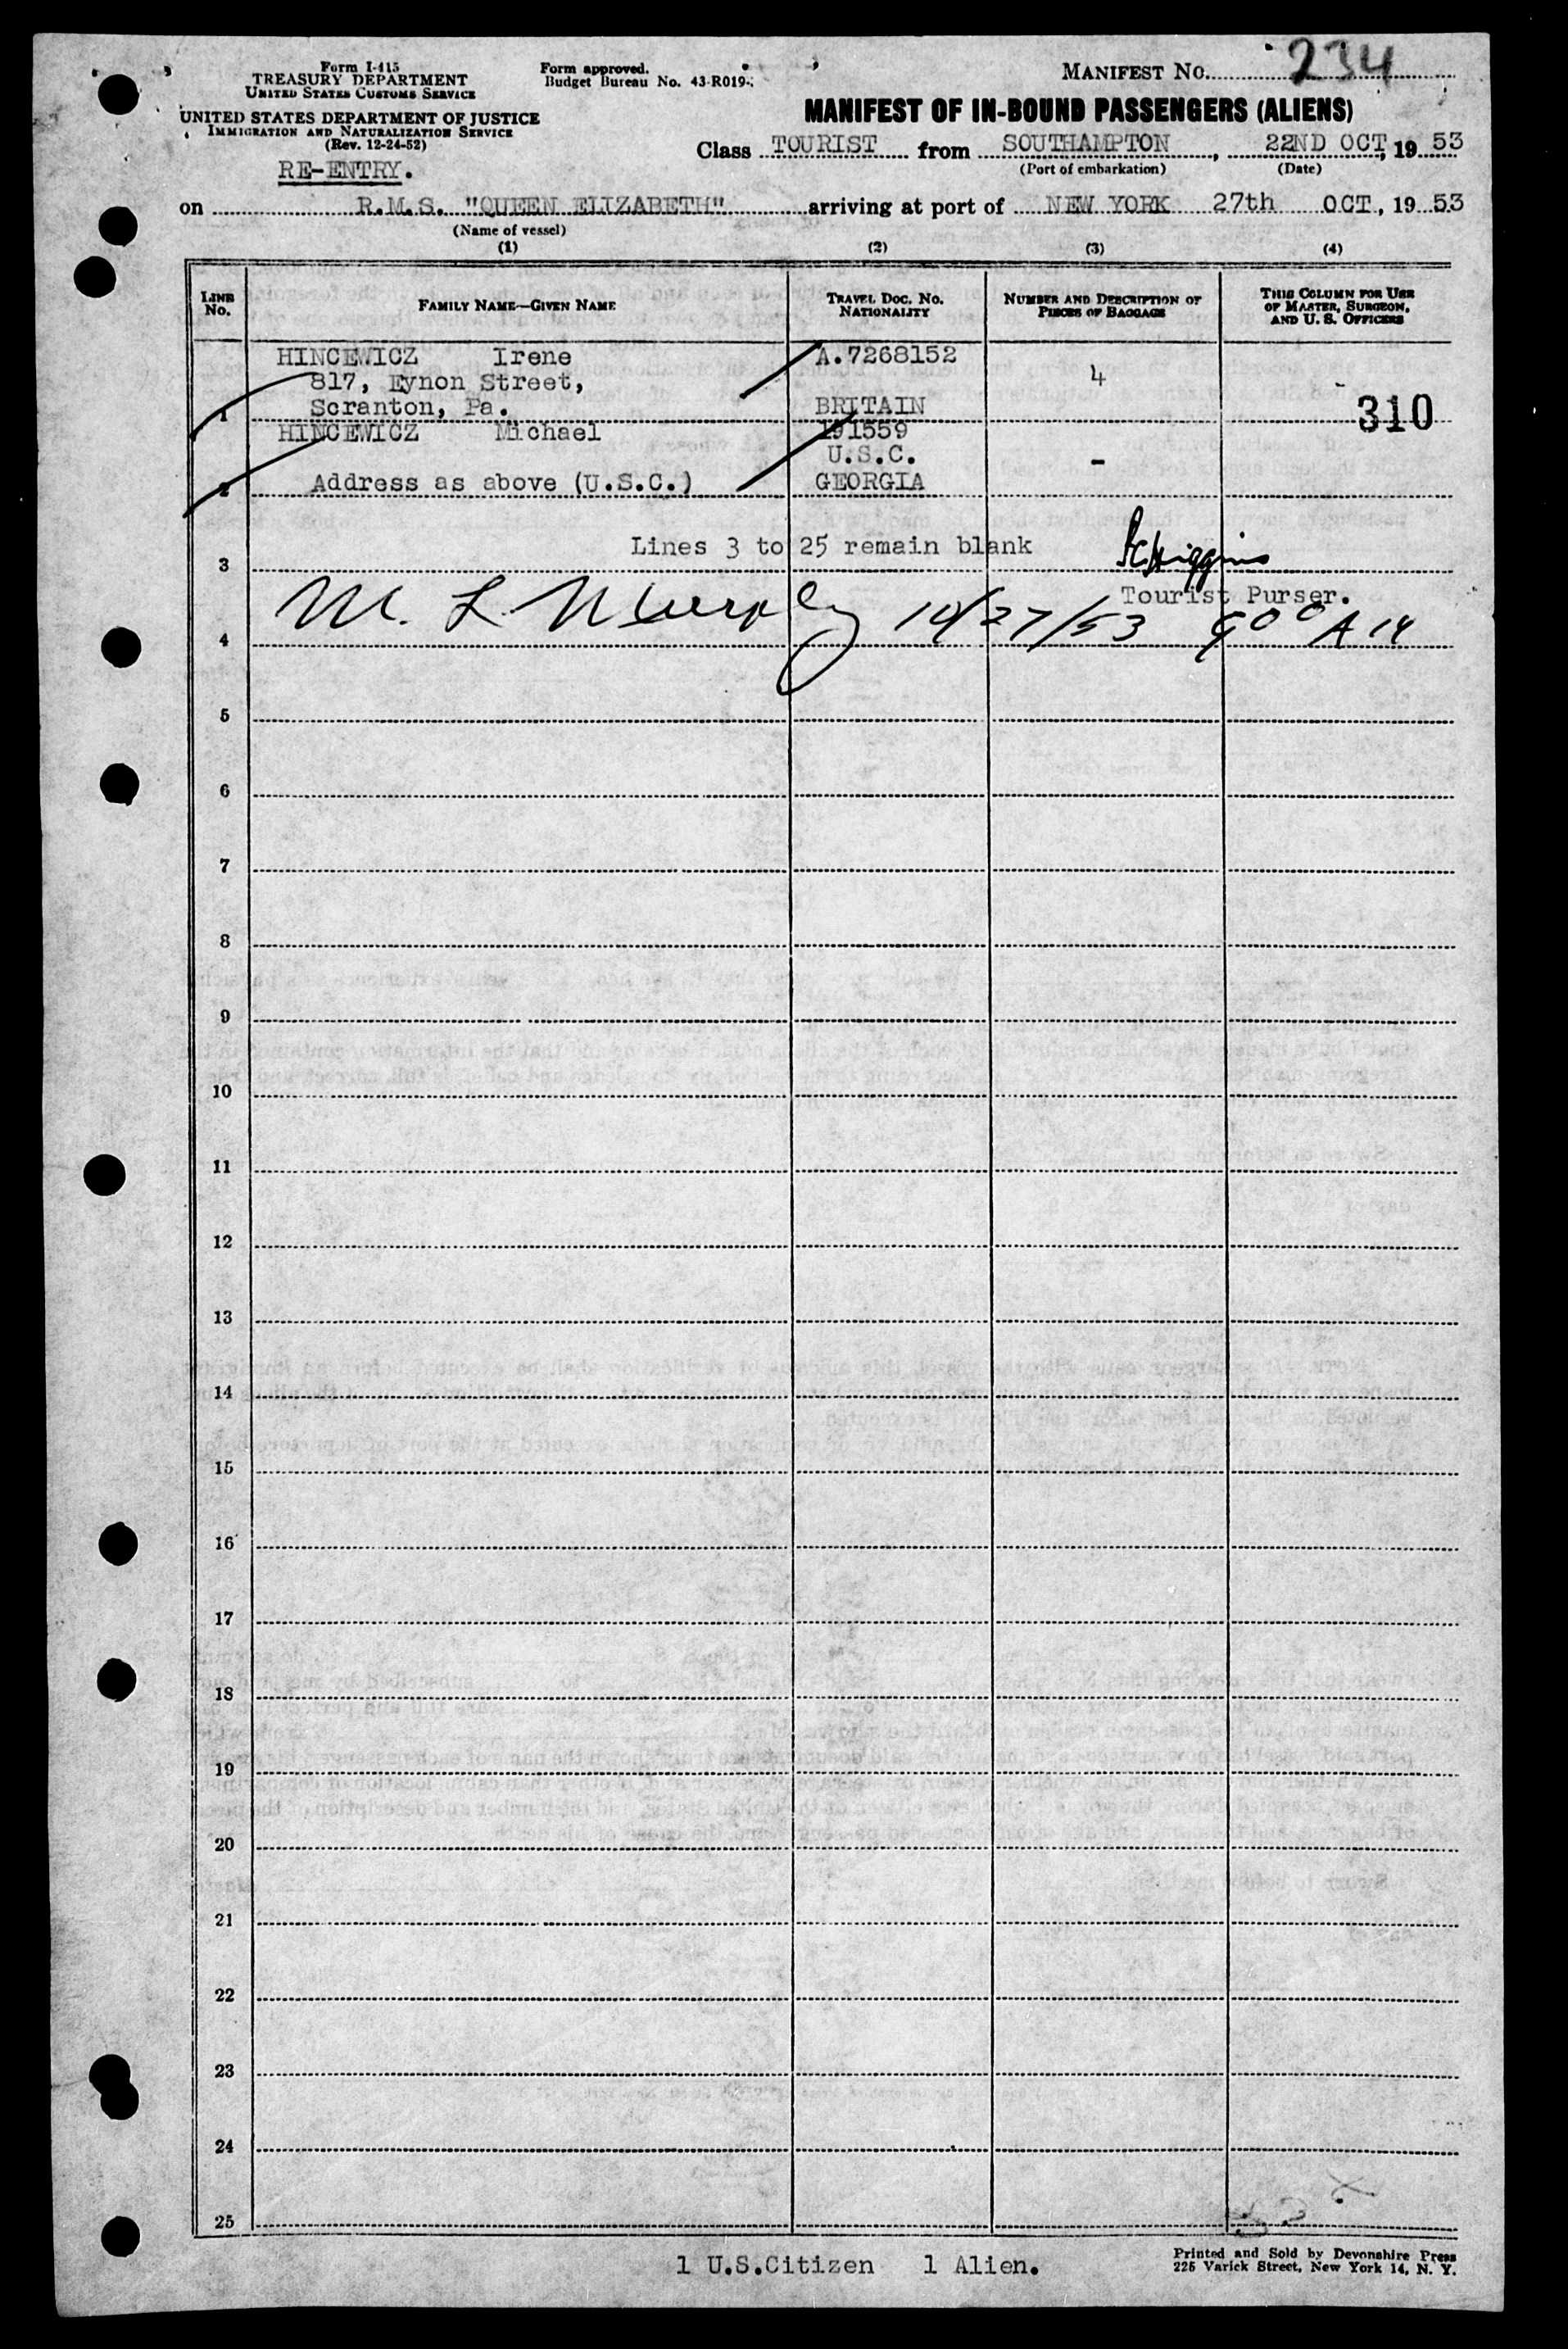 Form I-415
TREASURY DEPARTMENT
UNITED STATES CUSTOMS SERVICE
UNITED STATES DEPARTMENT OF JUSTICE
IMMIGRATION AND NATURALIZATION SERVICE
(Rev. 12-24-52)
RE-ENTRY.
Form approved.
Budget Bureau No. 43-R019-
MANIFEST NO. 234
MANIFEST OF IN-BOUND PASSENGERS (ALIENS)
Class TOURIST from SOUTHAMPTON, 22ND OCT, 1953
(Port of embarkation) (Date)
on R.M.S. "QUEEN ELIZABETH" arriving at port of NEW YORK 27th OCT, 1953
(Name of vessel)
(1) (2) (3) (4)
LINE NO. FAMILY NAME—GIVEN NAME TRAVEL DOC. NO. NATIONALITY NUMBER AND DESCRIPTION OF PIECES OF BAGGAGE THIS COLUMN FOR USE OF MASTER, SURGEON, AND U. S. OFFICERS
HINCEWICZ Irene A.7268152
817, Eynon Street, 4
1 Scranton, Pa. BRITAIN 310
HINCEWICZ Michael 191559
U.S.C. -
2 Address as above (U.S.C.) GEORGIA
3 Lines 3 to 25 remain blank Higgins
Tourist Purser.
4 M. L. Murphy 10/27/53 9 00 A
5
6
7
8
9
10
11
12
13
14
15
16
17
18
19
20
21
22
23
24
25
1 U.S.Citizen 1 Alien.
Printed and Sold by Devonshire Press
225 Varick Street, New York 14, N. Y.